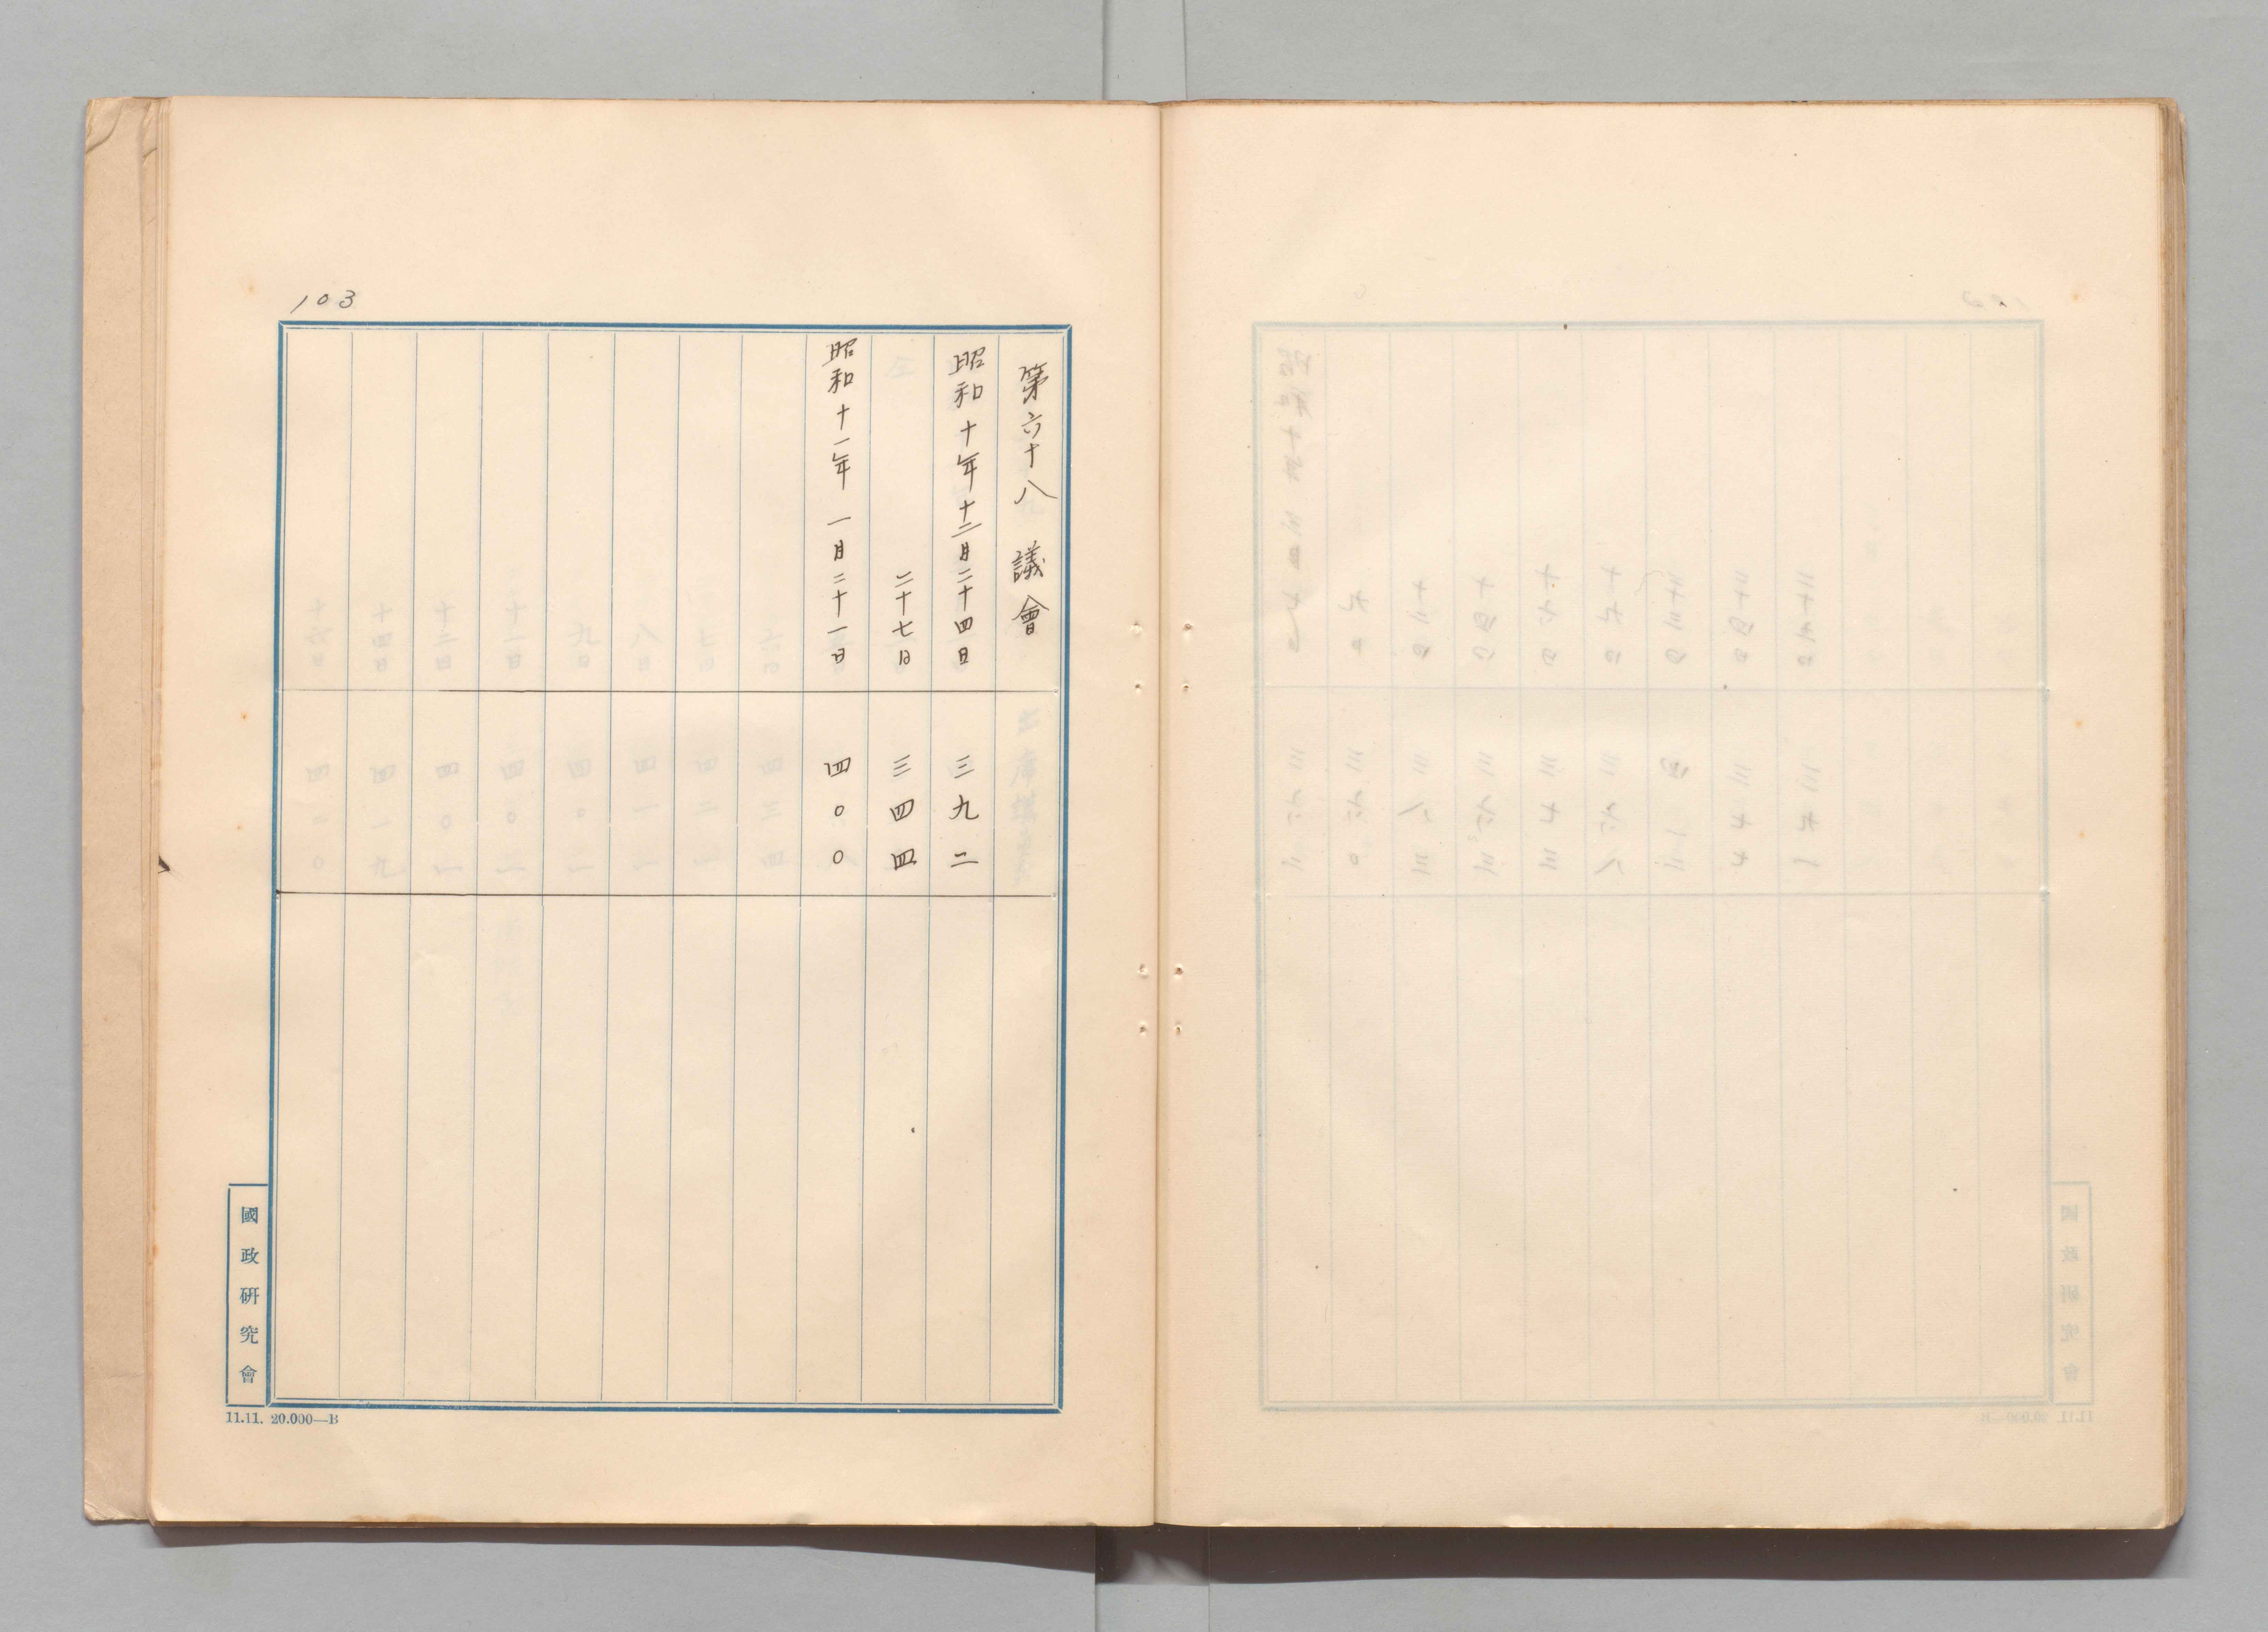 103
第六十八議會
昭和十年十二月二十四日 三九二
二十七日 三四四
昭和十一年一月二十一日 四〇〇
國政研究會
11.11. 20.000—B